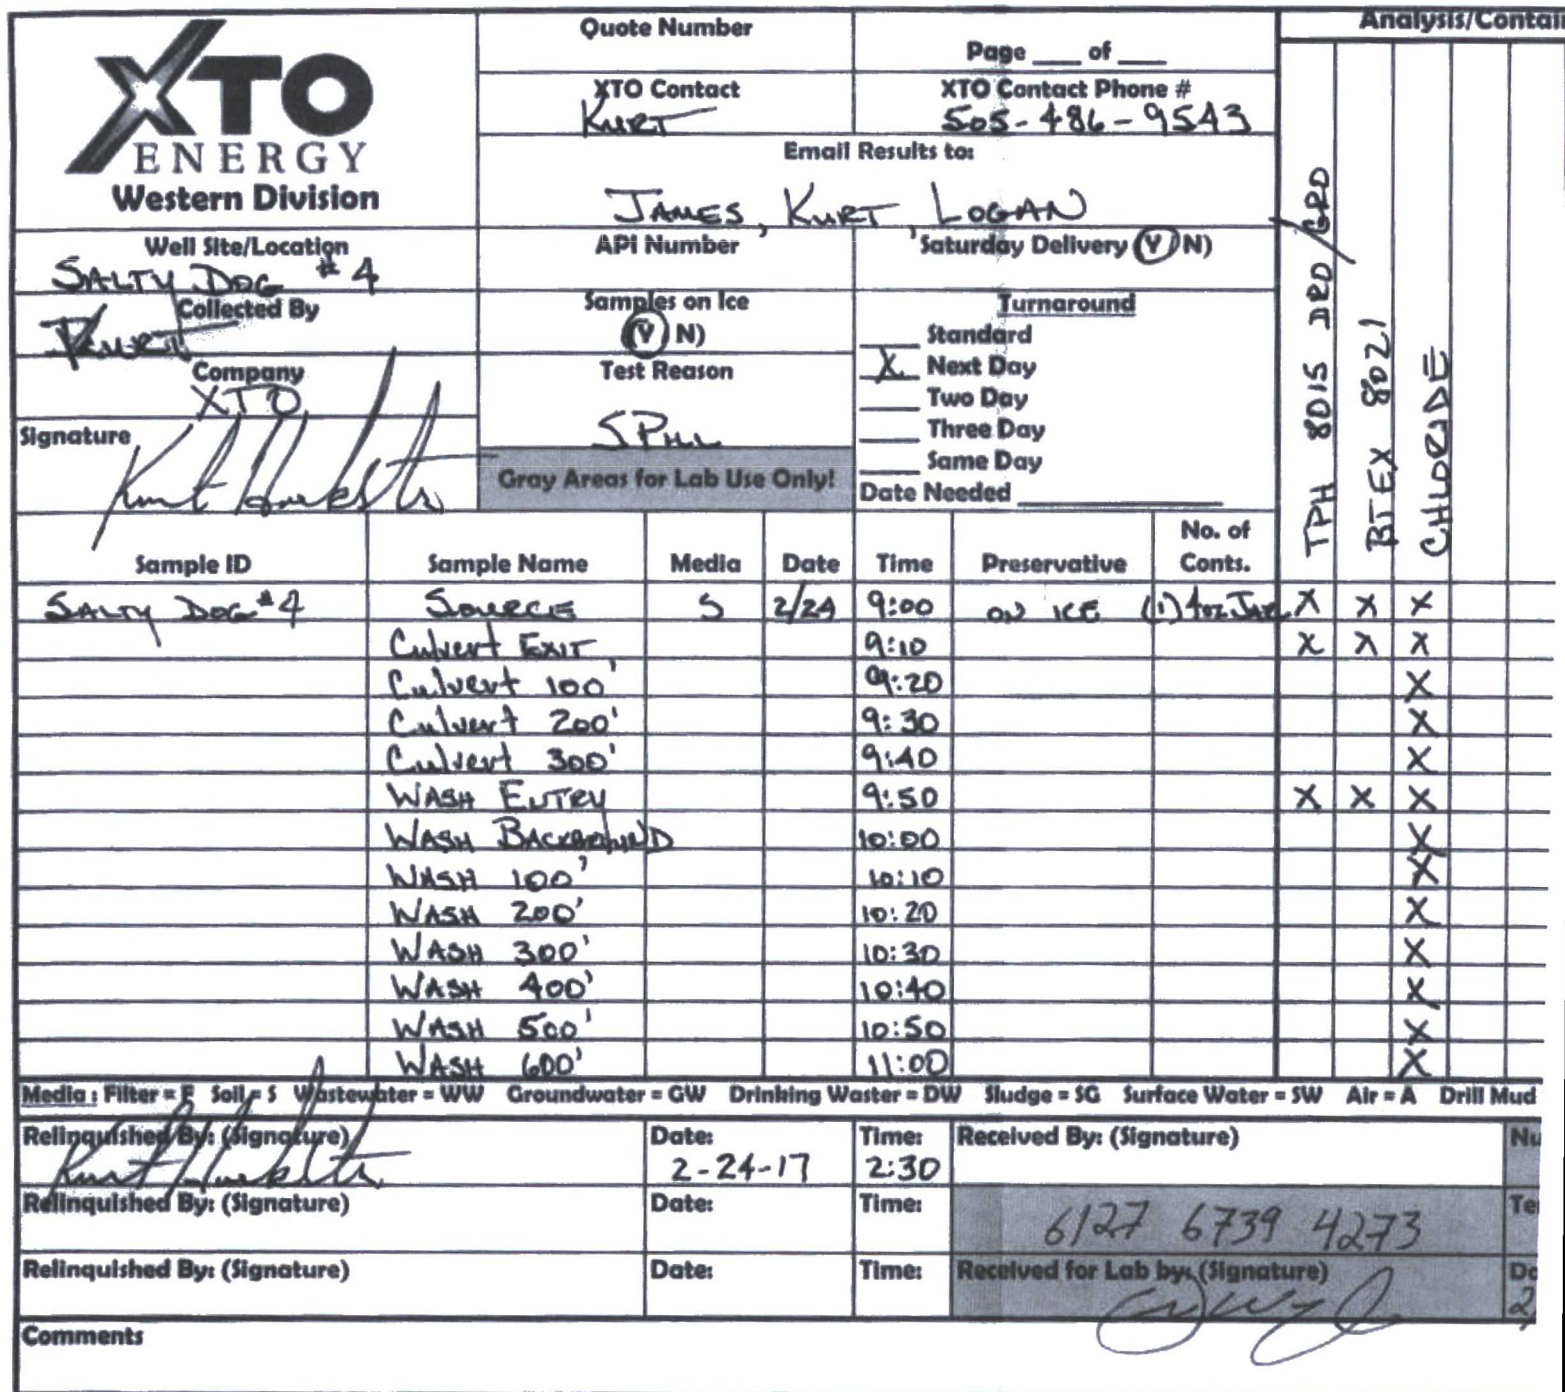 XTO
ENERGY
Western Division
Quote Number
Page ___ of ___
XTO Contact
KURT
XTO Contact Phone #
505-486-9543
Email Results to:
JAMES, KURT, LOGAN
Well Site/Location
SALTY DOG #4
API Number
Saturday Delivery (Y / N)
Collected By
KURT
Samples on Ice
(Y / N)
Company
XTO
Test Reason
SPILL
Signature
Gray Areas for Lab Use Only!
Turnaround
___ Standard
X Next Day
___ Two Day
___ Three Day
___ Same Day
Date Needed ___
Analysis/Contai
TPH 8015 DRO/GRO
BTEX 8021
CHLORIDE
Sample ID Sample Name Media Date Time Preservative No. of Conts.
SALTY DOG #4 SOURCE S 2/24 9:00 ON ICE (1) 4oz JAR X X X
Culvert EXIT 9:10 X X X
Culvert 100' 9:20 X
Culvert 200' 9:30 X
Culvert 300' 9:40 X
WASH ENTRY 9:50 X X X
WASH BACKGROUND 10:00 X
WASH 100' 10:10 X
WASH 200' 10:20 X
WASH 300' 10:30 X
WASH 400' 10:40 X
WASH 500' 10:50 X
WASH 600' 11:00 X
Media : Filter = F Soil = S Wastewater = WW Groundwater = GW Drinking Waster = DW Sludge = SG Surface Water = SW Air = A Drill Mud
Relinquished By: (Signature) Date: 2-24-17 Time: 2:30 Received By: (Signature) Nu
Relinquished By: (Signature) Date: Time: 6127 6739 4273 Te
Relinquished By: (Signature) Date: Time: Received for Lab by: (Signature)
Comments